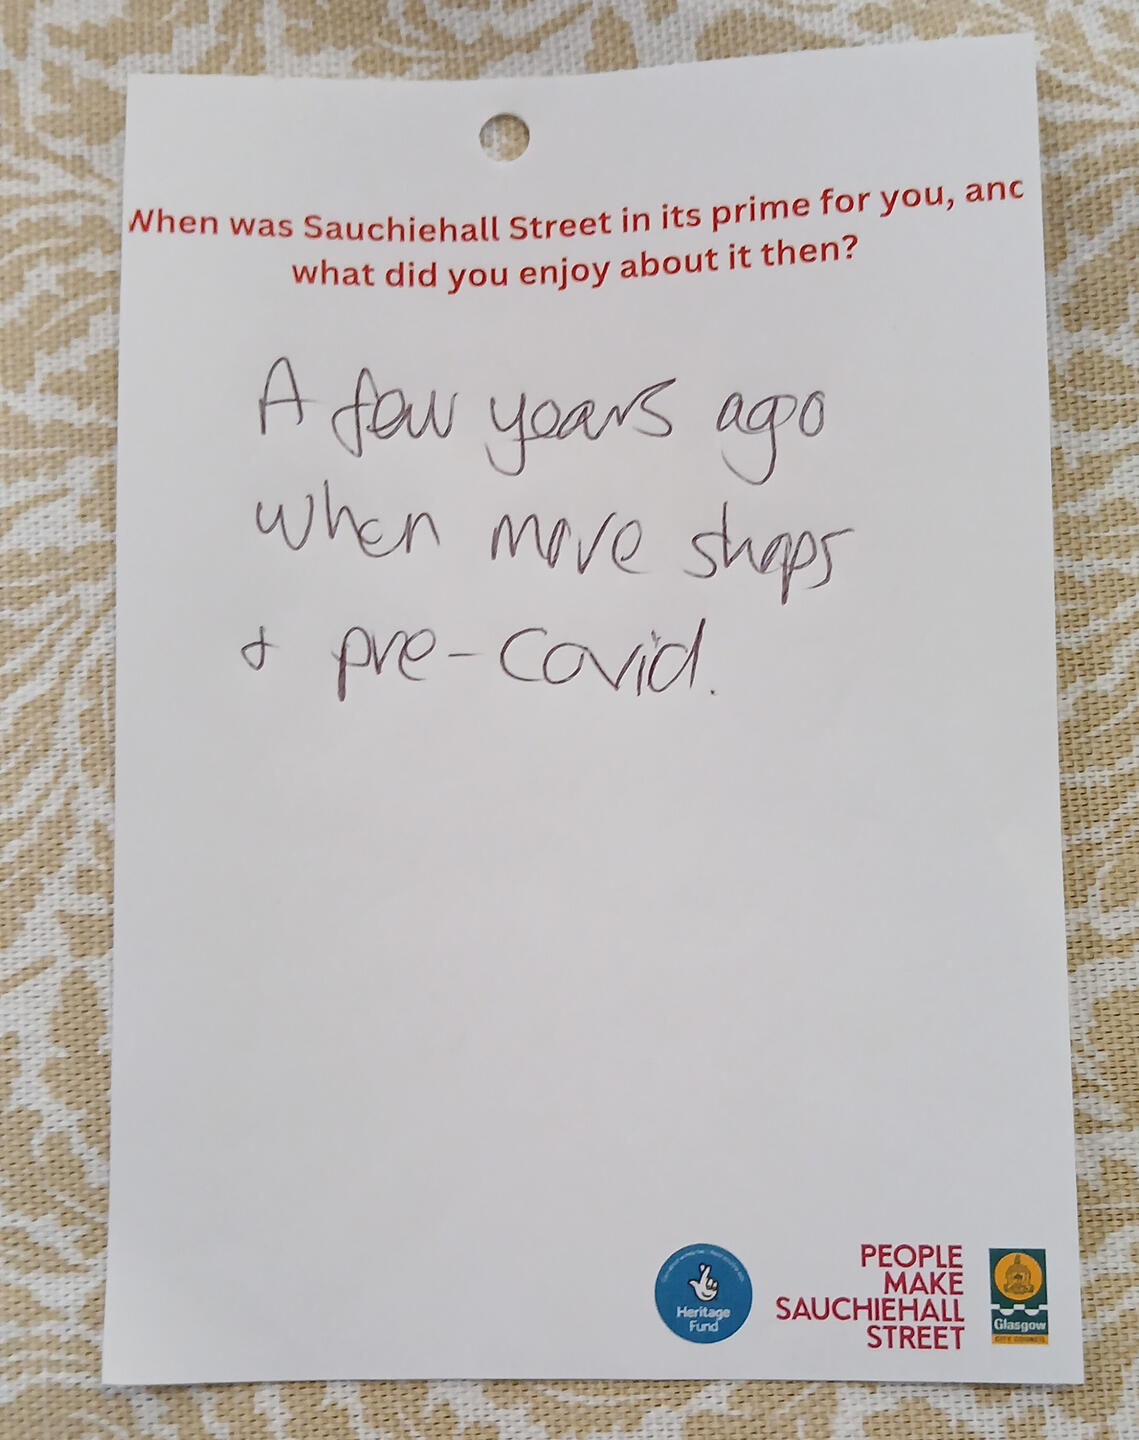 When was Sauchiehall Street in its prime for you, and
what did you enjoy about it then?
A few years ago
when more shops
+ pre-Covid.
Heritage
Fund
PEOPLE
MAKE
SAUCHIEHALL
STREET
Glasgow
CITY COUNCIL